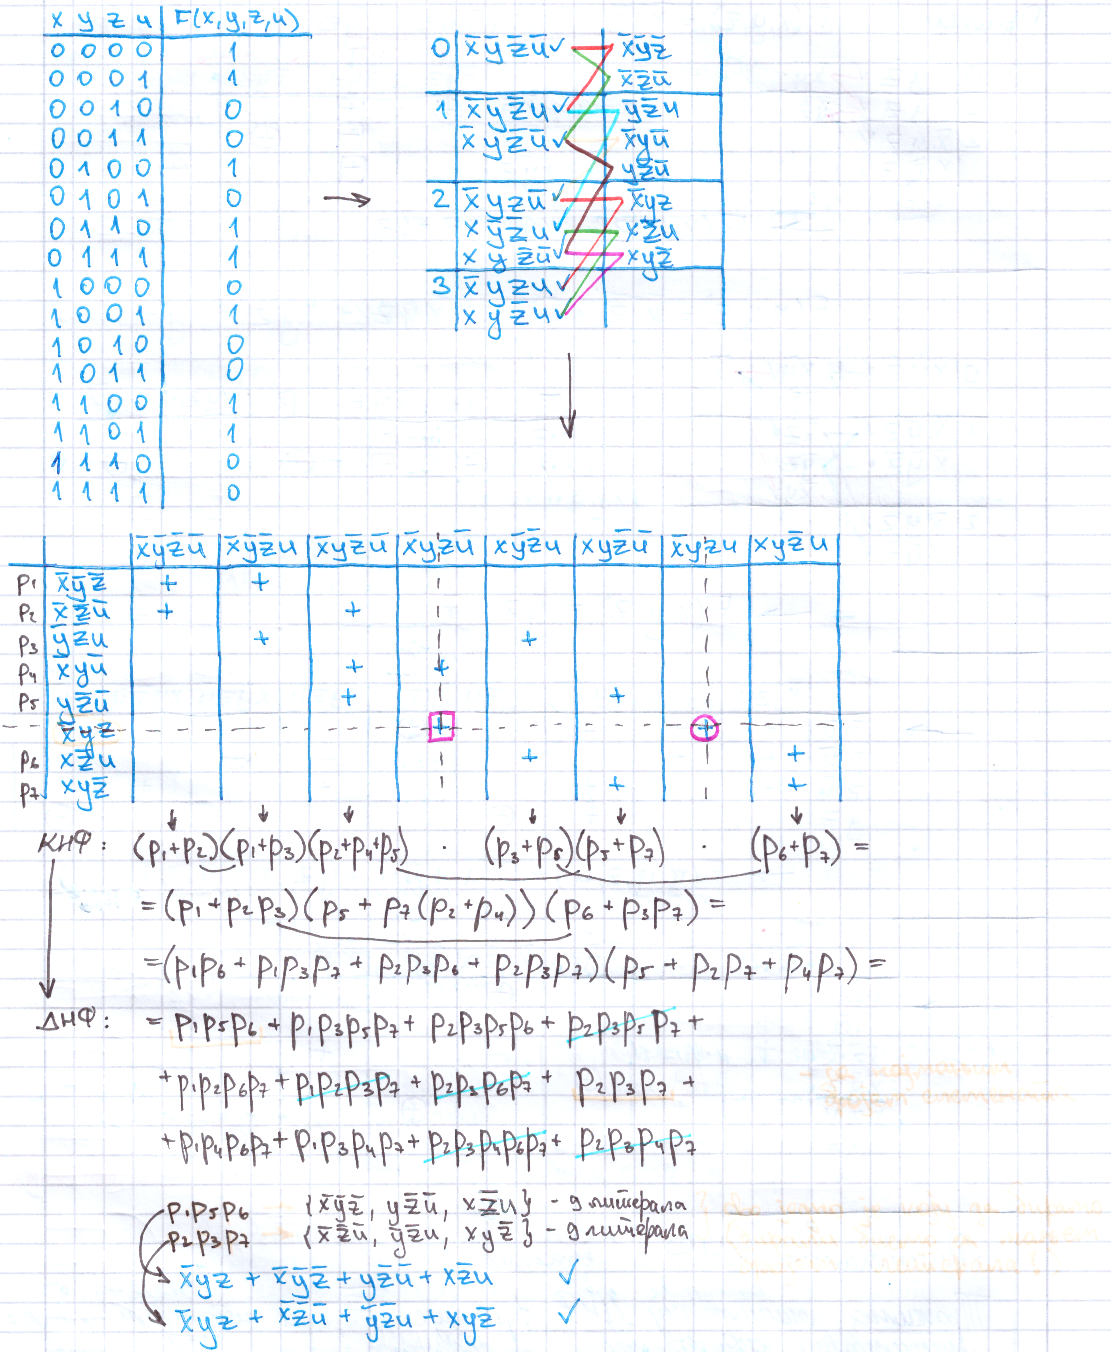 x y z u F(x,y,z,u)
0 0 0 0 1
0 0 0 1 1
0 0 1 0 0
0 0 1 1 0
0 1 0 0 1
0 1 0 1 0
0 1 1 0 1
0 1 1 1 1
1 0 0 0 0
1 0 0 1 1
1 0 1 0 0
1 0 1 1 0
1 1 0 0 1
1 1 0 1 1
1 1 1 0 0
1 1 1 1 0
→
0 x̄ȳz̄ū✓ x̄ȳz̄
x̄z̄ū
1 x̄ȳz̄u✓ ȳz̄u
x̄yz̄ū✓ x̄yū
yz̄ū
2 x̄yzū✓ x̄yz
xȳz̄u✓ xz̄u
xyz̄ū✓ xyz̄
3 x̄yzu✓
xyz̄u✓
x̄ȳz̄ū x̄ȳz̄u x̄yz̄ū x̄yzū xȳz̄u xyz̄ū x̄yzu xyz̄u
p₁ x̄ȳz̄ + +
p₂ x̄z̄ū + +
p₃ ȳz̄u + +
p₄ x̄yū + +
p₅ yz̄ū + +
x̄yz + +
p₆ xz̄u + +
p₇ xyz̄ + +
КНФ: (p₁+p₂)(p₁+p₃)(p₂+p₄+p₅) · (p₃+p₆)(p₅+p₇) · (p₆+p₇) =
= (p₁+p₂p₃)(p₅+p₇(p₂+p₄))(p₆+p₃p₇) =
=(p₁p₆+p₁p₃p₇+p₂p₃p₆+p₂p₃p₇)(p₅+p₂p₇+p₄p₇) =
ДНФ: = p₁p₅p₆+p₁p₃p₅p₇+p₂p₃p₅p₆+p₂p₃p₅p₇+
+p₁p₂p₆p₇+p₁p₂p₃p₇+p₂p₃p₆p₇+ p₂p₃p₇ +
+p₁p₄p₆p₇+p₁p₃p₄p₇+p₂p₃p₄p₆p₇+ p₂p₃p₄p₇
p₁p₅p₆ - {x̄ȳz̄, yz̄ū, xz̄u} - 9 литерала
p₂p₃p₇ - {x̄z̄ū, ȳz̄u, xyz̄} - 9 литерала
x̄yz + x̄ȳz̄ + yz̄ū + xz̄u ✓
x̄yz + x̄z̄ū + ȳz̄u + xyz̄ ✓